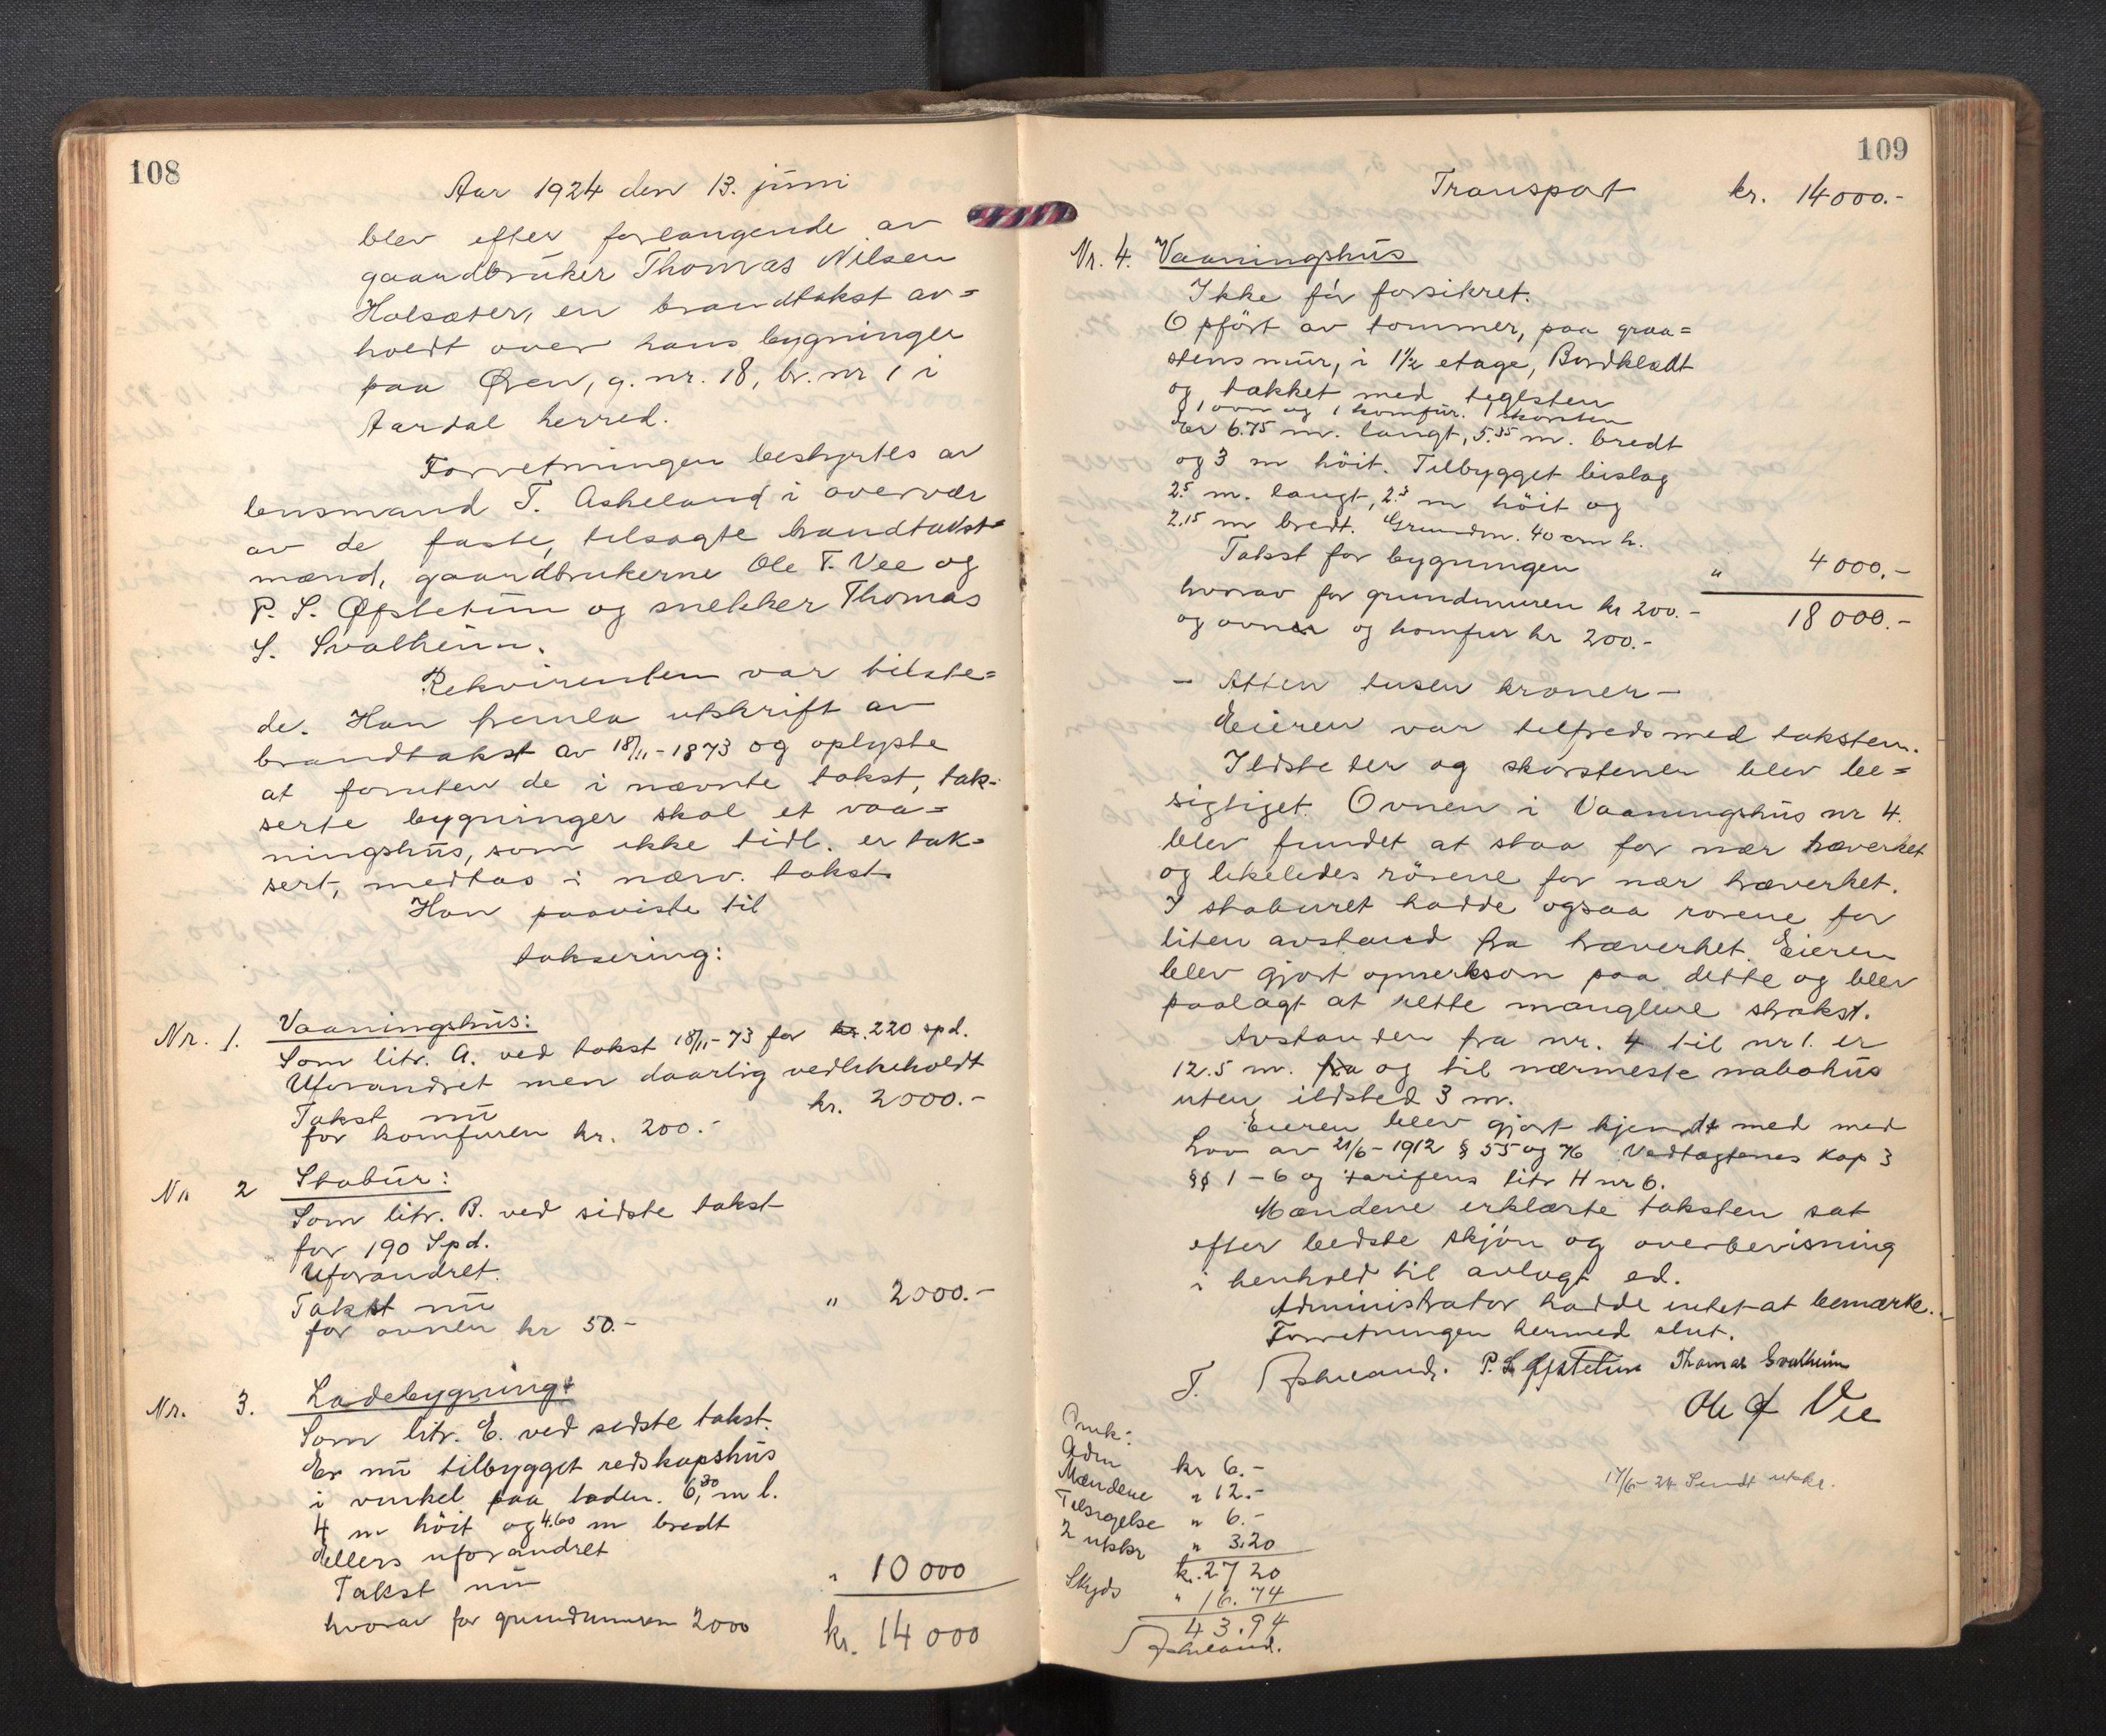 108
Aar 1924 den 13. juni
blev efter forlangende av
gaardbruker Thomas Nilsen
Holsæter, en brandtakst av=
holdt over hans bygninger
paa Øren, g. nr. 18, br. nr 1 i
Aardal herred.
Forretningen bestyrtes av
lensmand T. Askeland i overvær
av de faste, tilsagte brandtakst=
mænd, gaardbrukerne Ole T. Vee og
P. S. Øfstetun og snekker Thomas
S. Svalheim.
Rekvirenten var tilste=
de. Han fremla utskrift av
brandtakst av 18/11-1873 og oplyste
at foruten de i nævnte takst, tak=
serte bygninger skal et vaa=
ningshus, som ikke tidl. er tak=
sert, medtas i nærv. takst.
Han paaviste til
taksering:
Nr. 1. Vaaningshus:
Som litr. A. ved takst 18/11-73 for kr. 220 spd.
Uforandret men daarlig vedlikeholdt
Takst nu kr. 2000.-
for komfuren kr. 200.-
Nr 2 Stabur:
Som litr. B. ved sidste takst
for 190 Spd.
Uforandret.
Takst nu " 2000.-
for ovnen kr 50.-
Nr. 3. Ladebygning:
Som litr. E. ved sidste takst.
Er nu tilbygget redskapshus
i vinkel paa laden. 6,30 m l.
4 m høit og 4.60 m bredt
Ellers uforandret
Takst nu " 10000
hvorav for grundmuren 2000
kr. 14000
109
Transport kr. 14000.-
Nr. 4. Vaaningshus
Ikke før forsikret.
Opført av tømmer, paa graa=
stensmur, i 1½ etage, Bordklædt
og tækket med teglsten
1 ovn og 1 komfur. 1 skorsten
Er 6.75 m. langt, 5.35 m. bredt
og 3 m høit. Tilbygget bislag
2.5 m. langt, 2.3 m høit og
2.15 m bredt. Grundm. 40 cm h.
Takst for bygningen " 4000.-
hvorav for grundmuren kr 200.- 18000.-
og ovner og komfur kr 200.-
- Atten tusen kroner -
Eieren var tilfreds med taksten.
Ildsteder og skorstener blev be=
sigtiget. Ovnen i Vaaningshus nr 4.
blev fundet at staa for nær træverket
og likeledes rörene for nær træverket.
I staburet hadde ogsaa rørene for
liten avstand fra træverket. Eieren
blev gjort opmerksom paa dette og blev
paalagt at rette manglene strakst.
Avstanden fra nr. 4 til nr 1. er
12.5 m. fra og til nærmeste nabohus
uten ildsted 3 m.
Eieren blev gjort kjendt med med
Lov av 21/6-1912 § 55 og 76 Vedtægtenes Kap 3
§§ 1-6 og tarifens litr H nr 6.
Mændene erklærte taksten sat
efter bedste skjøn og overbevisning
i henhold til avlagt ed.
Administrator hadde intet at bemærke.
Forretningen hermed slut.
T. Askeland. P. S. Øfstetun Thomas Svalheim
Ole T Vee
Adm kr 6.-
Mændene " 12.-
Tilsigelse " 6.-
2 utskr " 3.20
kr. 27 20
Skyds " 16.74
43.94
Askeland.
17/6-24 Sendt utskr.